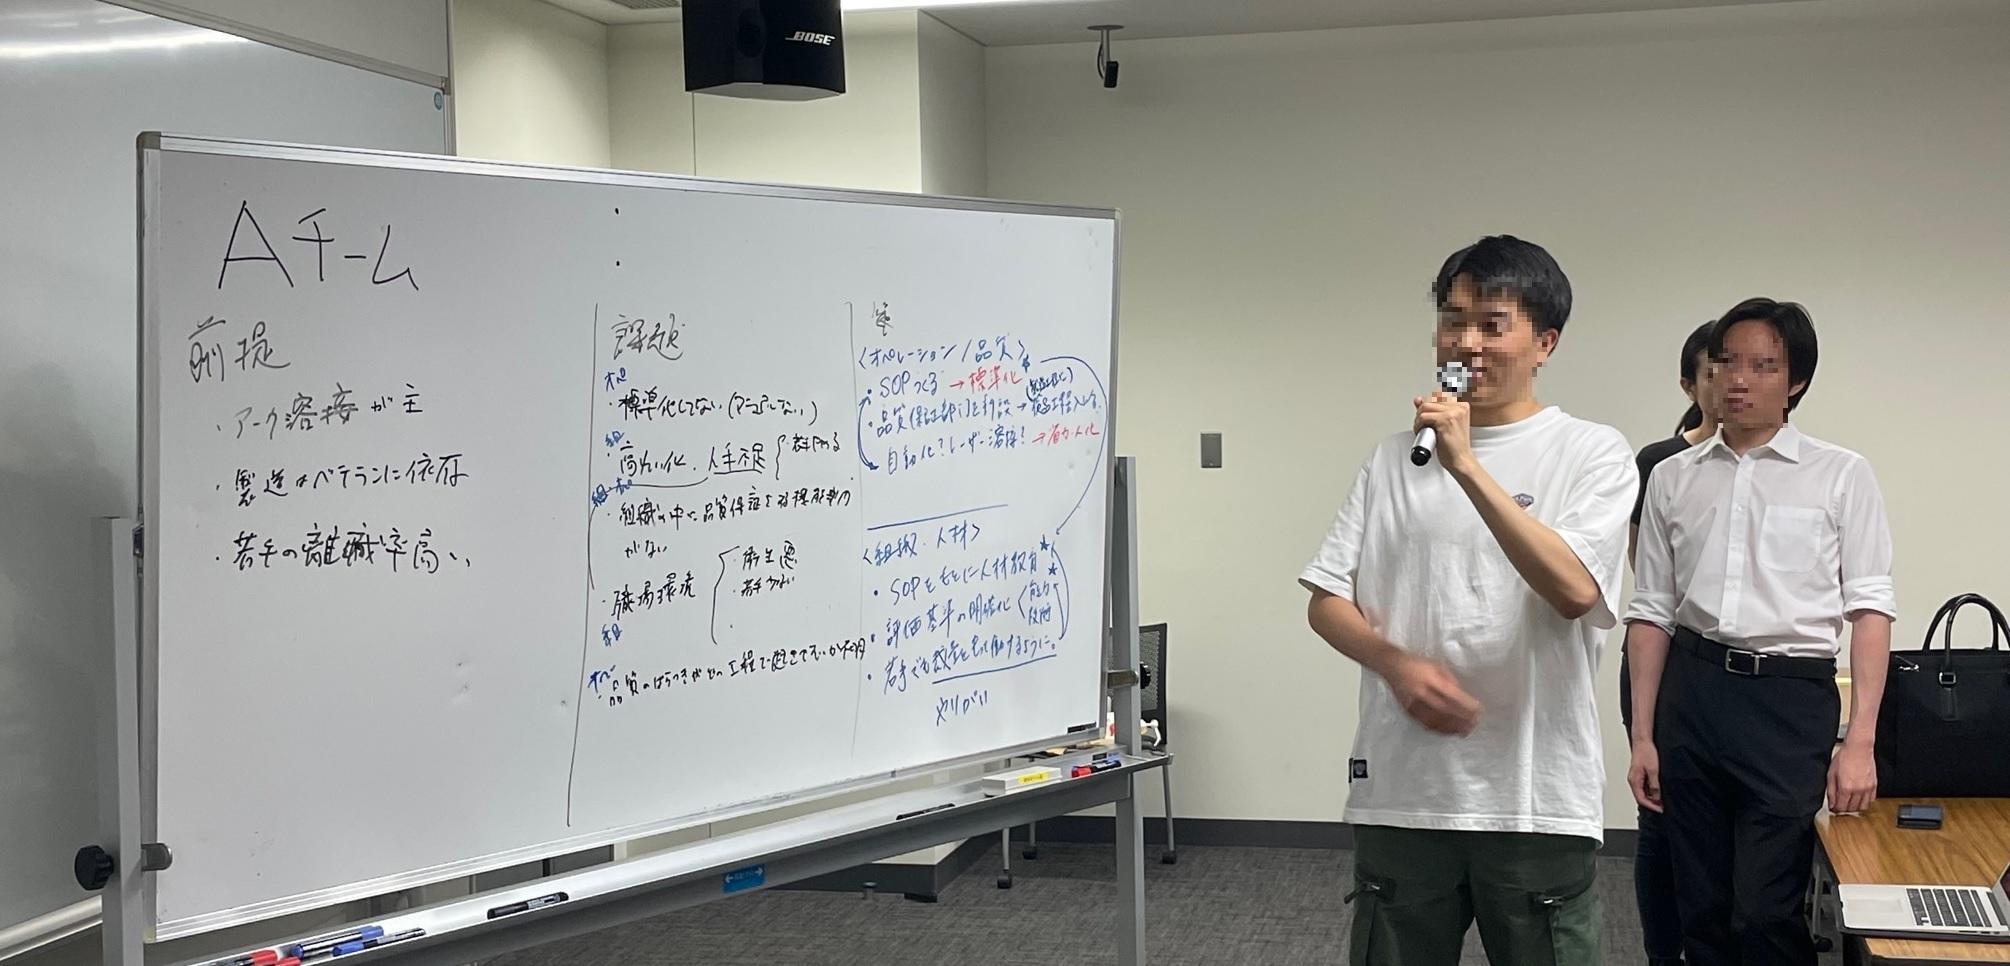 BOSE
Aチーム
前提
・アーク溶接が主
・製造はベテランに依存
・若手の離職率高い
課題
オペ
・標準化してない(マニュアルない)
組
・高れい化、人手不足
組・オペ
・組織の中に品質保証する
がない
・職場環境
・衛生悪
・若手少ない
組
オペ
・品質のばらつきがどの工程で起きているか不明
策
<オペレーション/品質>
・SOPつくる→標準化
・品質保証部門を新設→
自動化?レーザー溶接!→省力・人化
<組織・人材>
・SOPをもとに人材教育
・評価基準の明確化
能力
・若手でも裁量をもって働けるように。
やりがい